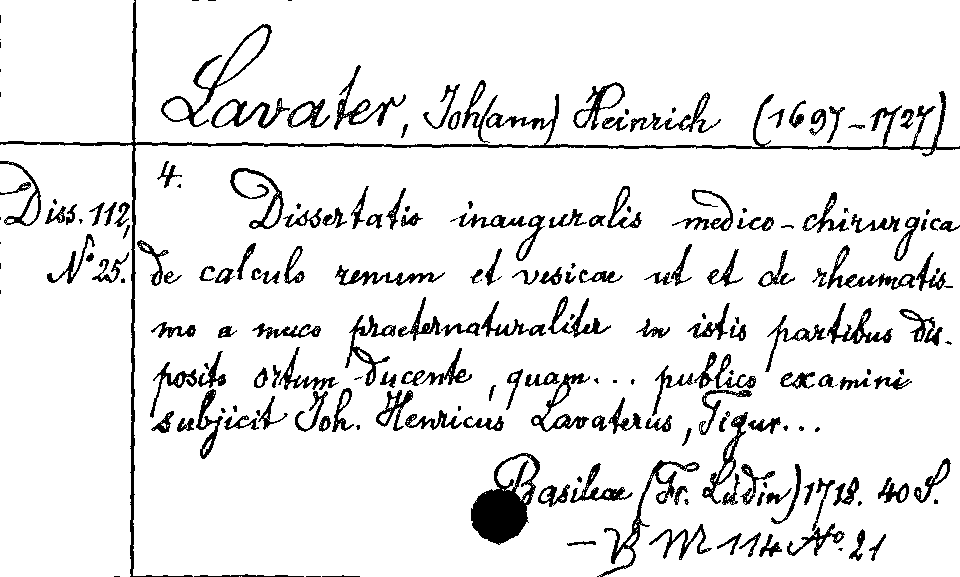 Lavater, Joh(ann) Heinrich (1697-1727)
4.
Diss. 112,
No 25.
Dissertatio inauguralis medico-chirurgica
de calculo renum et vesicae ut et de rheumatis-
mo a muco praeternaturaliter in istis partibus dis-
posito ortum ducente, quam... publico examini
subjicit Joh. Henricus Lavaterus, Tigur...
Basileae (Fr. Lüdin) 1718. 40 S.
— B M 114 No. 21